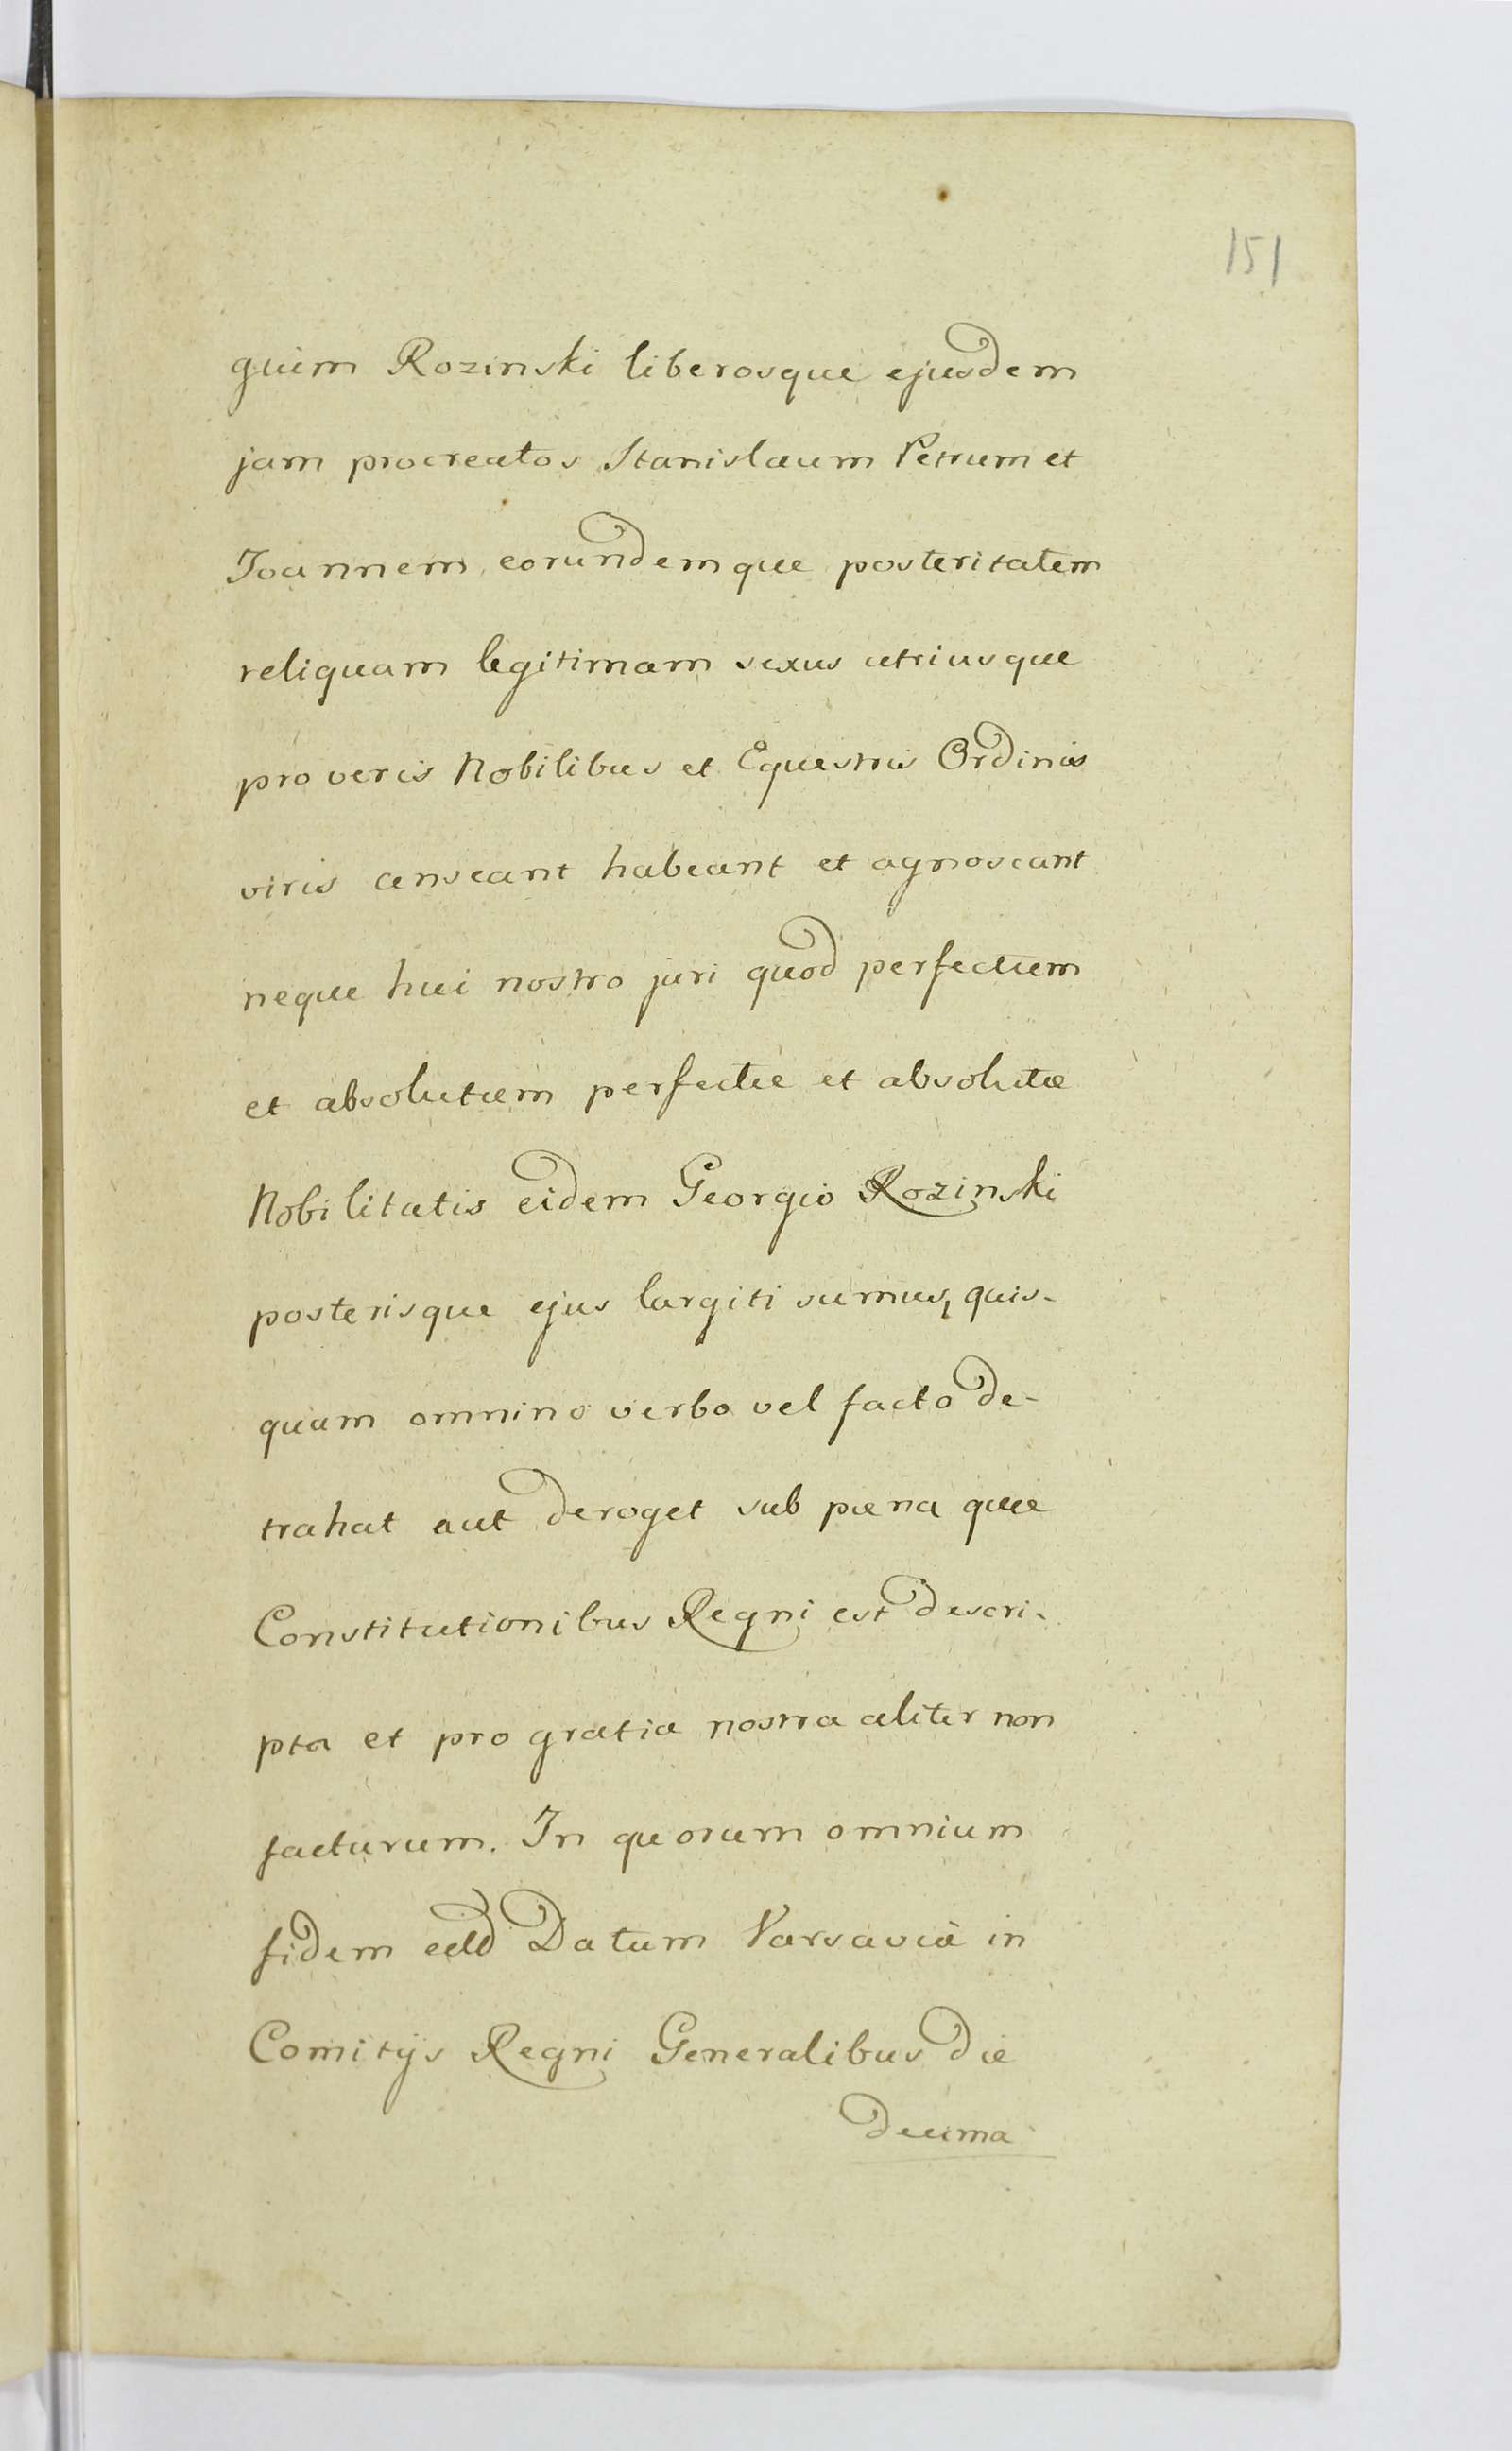 151
gium Rozinski liberosque ejusdem
jam procreatos Stanislaum Petrum et
Joannem eorundemque posteritatem
reliquam legitimam sexus utriusque
pro veris Nobilibus et Equestris Ordinis
viris censeant habeant et agnoscant
neque huic nostro juri quod perfectum
et absolutum perfectæ et absolutæ
Nobilitatis eidem Georgio Rozinski
posterisque ejus largiti sumus, quis-
quam omnino verbo vel facto de-
trahat aut deroget sub pæna quæ
Constitutionibus Regni est descri-
pta et pro gratia nostra aliter non
facturum. In quorum omnium
fidem Datum Varsaviæ in
Comitijs Regni Generalibus die
decima